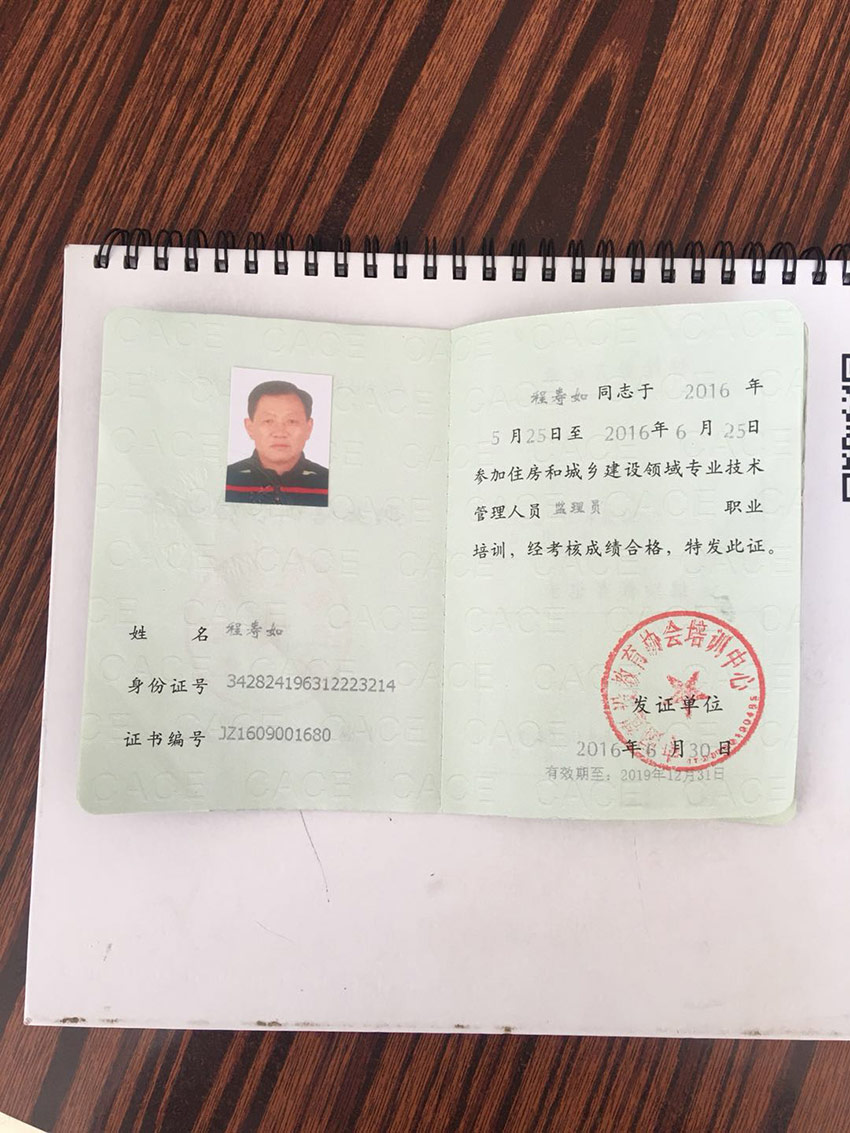 姓 名 程寿如
身份证号 342824196312223214
证书编号 JZ1609001680
程寿如 同志于 2016 年
5 月 25 日至 2016 年 6 月 25 日
参加住房和城乡建设领域专业技术
管理人员 监理员 职业
培训，经考核成绩合格，特发此证。
教育协会培训中心
发证单位
2016年 6 月 30 日
有效期至：2019年12月31日
CACE